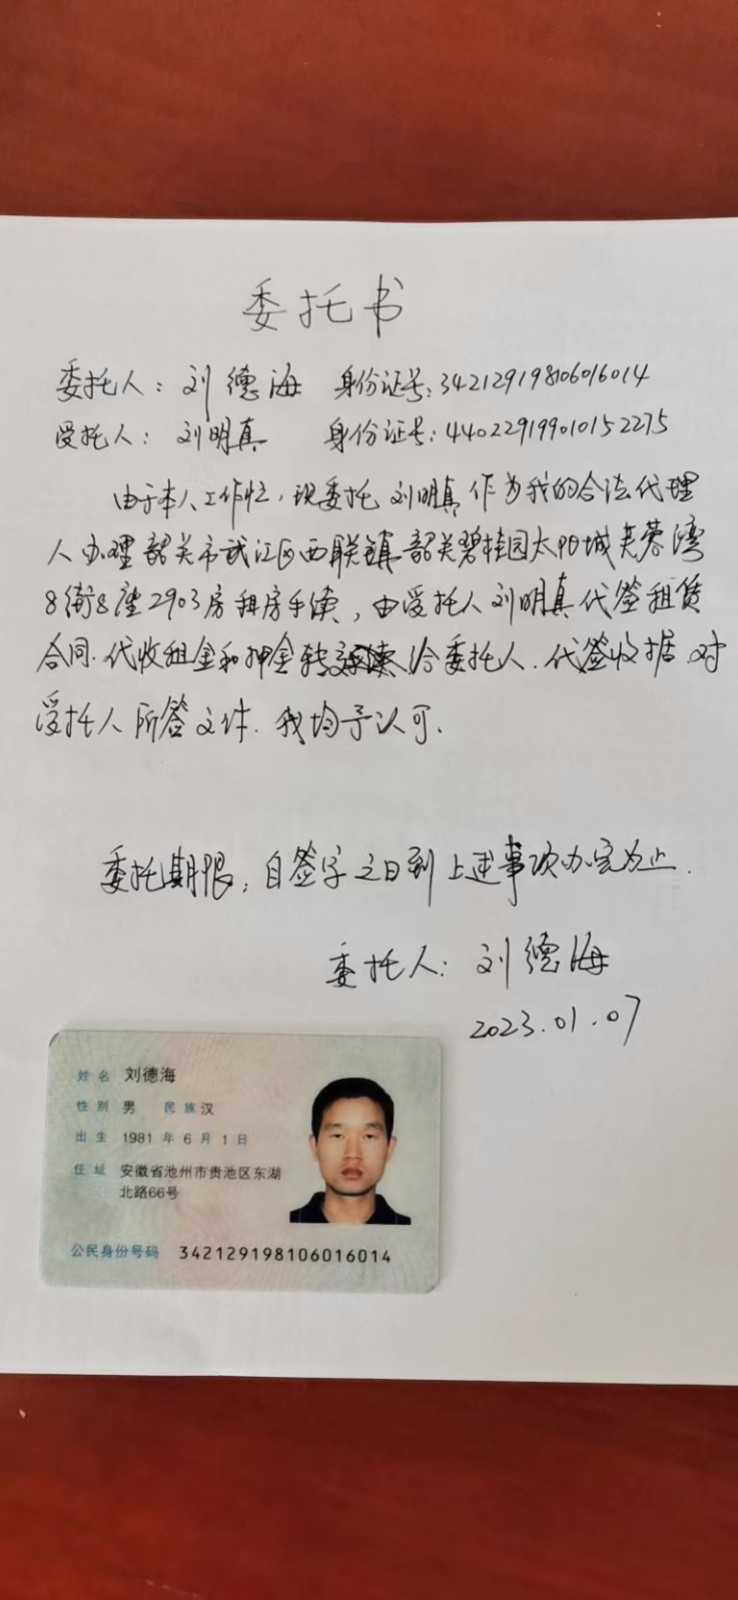 委托书
委托人：刘德海 身份证号：342129198106016014
受托人：刘明真 身份证号：440229199010152275
由于本人工作忙，现委托 刘明真 作为我的合法代理
人办理韶关市武江区西联镇韶关碧桂园太阳城芙蓉湾
8街8座2903房租房手续，由受托人刘明真代签租赁
合同.代收租金和押金转给委托人.代签收据.对
受托人所签文件.我均予认可.
委托期限：自签字之日到上述事项办完为止.
委托人：刘德海
2023.01.07
姓名 刘德海
性别 男 民族 汉
出生 1981 年 6 月 1 日
住址 安徽省池州市贵池区东湖
北路66号
公民身份号码 342129198106016014